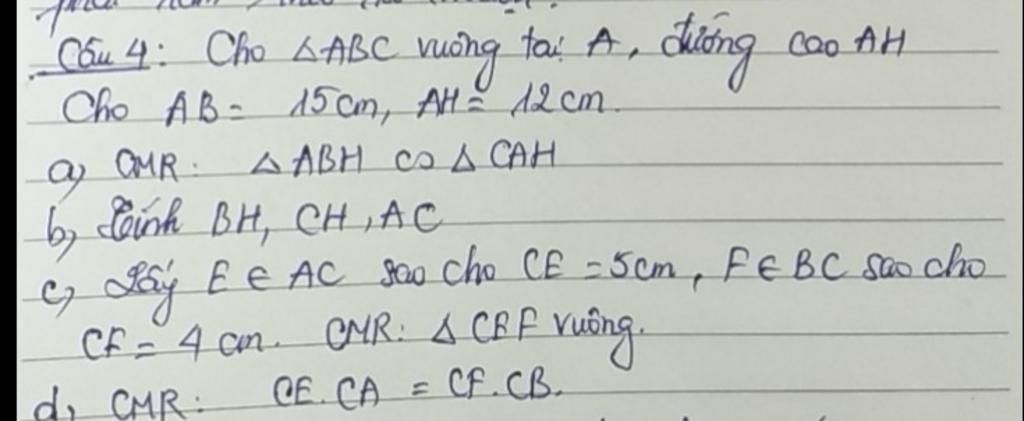 Câu 4: Cho △ABC vuông tại A, đường cao AH
Cho AB = 15cm, AH = 12cm.
a, CMR: △ABH ᔕ △CAH
b, Tính BH, CH, AC
c, Lấy E ∈ AC sao cho CE = 5cm, F ∈ BC sao cho
CF = 4 cm. CMR: △CEF vuông.
d, CMR: CE.CA = CF.CB.